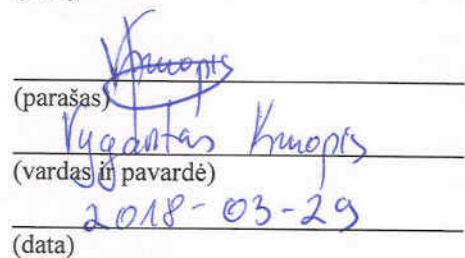 (parašas)
Vygantas Kruopis
(vardas ir pavardė)
2018-03-29
(data)